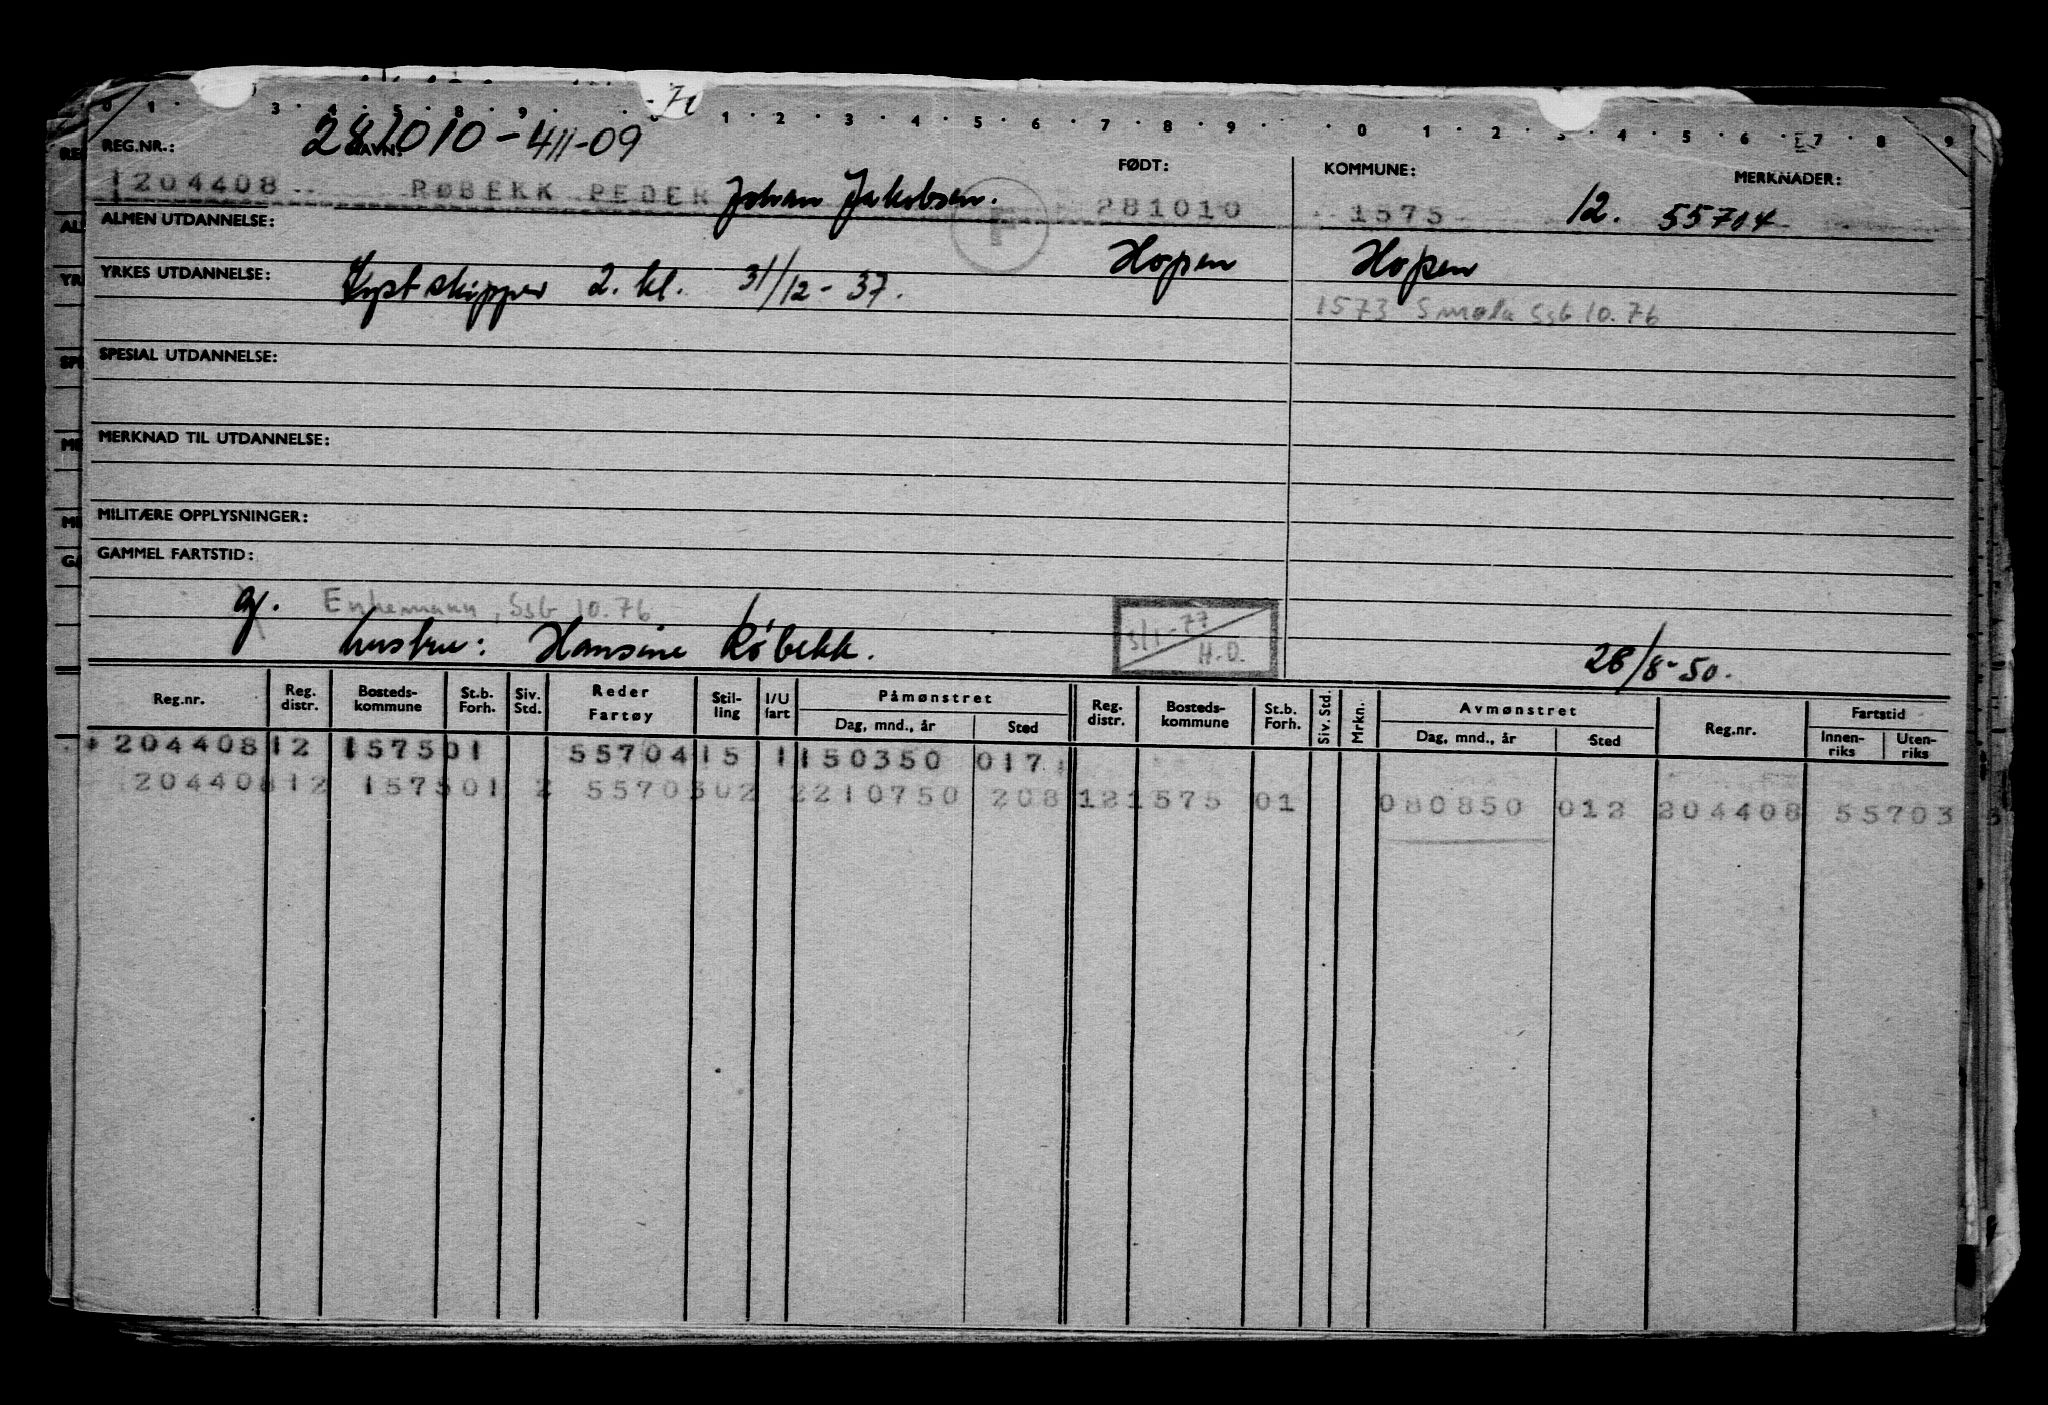 0 1 · 3 · 4 · 5 · 8 · 9 · 0 1 · 2 · 3 · 4 · 5 · 6 · 7 · 8 · 9 · · 0 1 · 2 · 3 · 4 · 5 · 6 · 7 · 8 · 9
REG.NR.: NAVN: 281010-411-09 FØDT: KOMMUNE: MERKNADER:
204408 RØBEKK PEDER Johan Jakobsen. F 281010 1575 12. 55704
ALMEN UTDANNELSE: Hopen Hopen
YRKES UTDANNELSE: Kystskipper 2. kl. 31/12-37.
1573 Smøla SsB 10.76
SPESIAL UTDANNELSE:
MERKNAD TIL UTDANNELSE:
MILITÆRE OPPLYSNINGER:
GAMMEL FARTSTID:
g. Enkemann, SsB 10.76
hustru: Hansine Røbekk. 3/1-77 H.O. 28/8-50.
Reg.nr. Reg. distr. Bosteds-kommune St.b. Forh. Siv. Std. Reder Fartøy Stil-ling I/U fart Påmønstret Dag, mnd., år Sted Reg. distr. Bosteds-kommune St.b. Forh. Siv. Std. Mrkn. Avmønstret Dag, mnd., år Sted Reg.nr. Fartstid Innen-riks Uten-riks
204408 12 1575 01 55704 15 1 150350 017
204408 12 1575 01 2 55703 02 2 210750 208 12 1575 01 080850 012 204408 55703